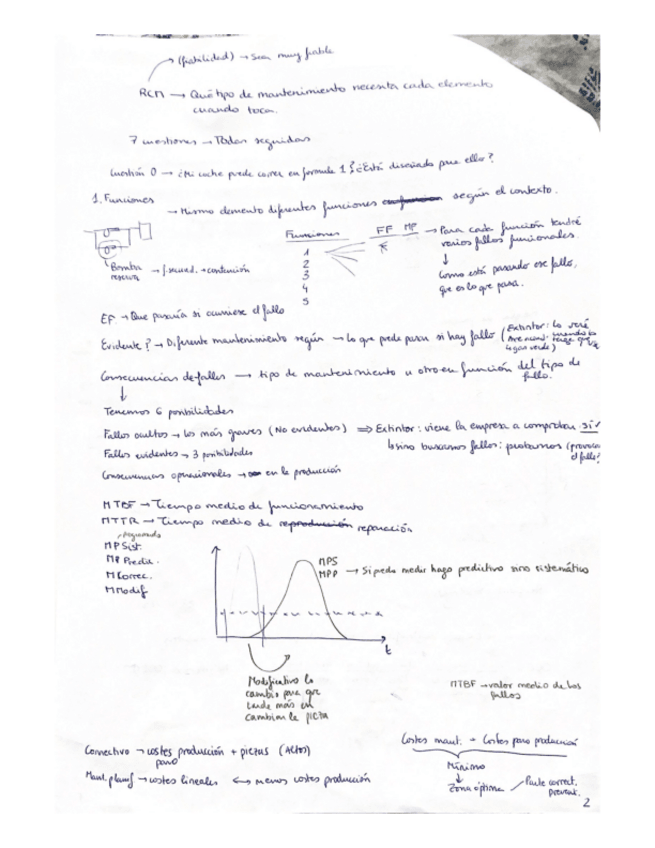 (fiabilidad) → Sea muy fiable
RCM → Qué tipo de mantenimiento necesita cada elemento
cuando toca.
7 cuestiones → Todas seguidas
Cuestión 0 → ¿Mi coche puede correr en formula 1? ¿Está diseñado para ello?
1. Funciones
→ Mismo elemento diferentes funciones según el contexto.
Funciones FF MF → Para cada función tendré
varios fallos funcionales.
1
2
3
4
5
↓
Como está pasando ese fallo,
que es lo que pasa.
Bomba
reserva → f. secund. → contención
EF → Que pasaría si ocurriese el fallo
Evidente? → Diferente mantenimiento según → lo que puede pasar si hay fallo (Extintor: lo veré
Consecuencias de fallos → tipo de mantenimiento u otro en función del tipo de
fallo.
↓
Tenemos 6 posibilidades
Fallos ocultos → los más graves (No evidentes) ⇒ Extintor: viene la empresa a comprobar sí
↳ sino buscamos fallos: probamos (provoca
el fallo)
Fallos evidentes → 3 posibilidades
Consecuencias operacionales → en la producción
MTBF → Tiempo medio de funcionamiento
MTTR → Tiempo medio de reproducción reparación
programado
MP Sist.
MP Predic.
M Correc.
M Modif
MPS
MPP → Si puedo medir hago predictivo sino sistemático
t
Modificativo lo
cambio para que
tarde más en
cambiar la pieza
MTBF → valor medio de los
fallos
Correctivo → costes producción + piezas (Altos)
paro
Mant. planif → costes lineales ↔ menos costes producción
Costes mant. + Costes paro producción
Mínimo
↓
Zona óptima
Parte correct.
prevent.
2